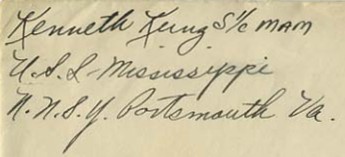 Kenneth Kung S1/c MAM
U.S.S. Mississippi
N.N.S.Y. Portsmouth Va.